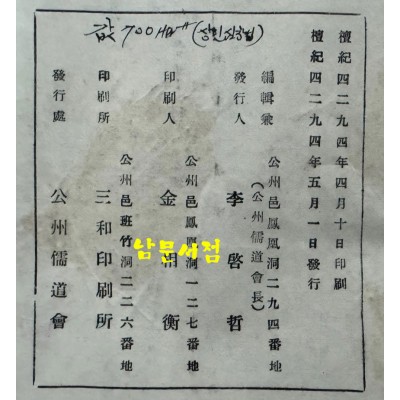 값 700 HW
檀紀四二九四年四月十日印刷
檀紀四二九四年五月一日發行
公州邑鳳凰洞二九四番地
(公州儒道會長)
編輯兼
發行人 李啓哲
公州邑鳳凰洞一二七番地
印刷人 金相衡
公州邑班竹洞二二六番地
印刷所 三和印刷所
發行處 公州儒道會
남문서점